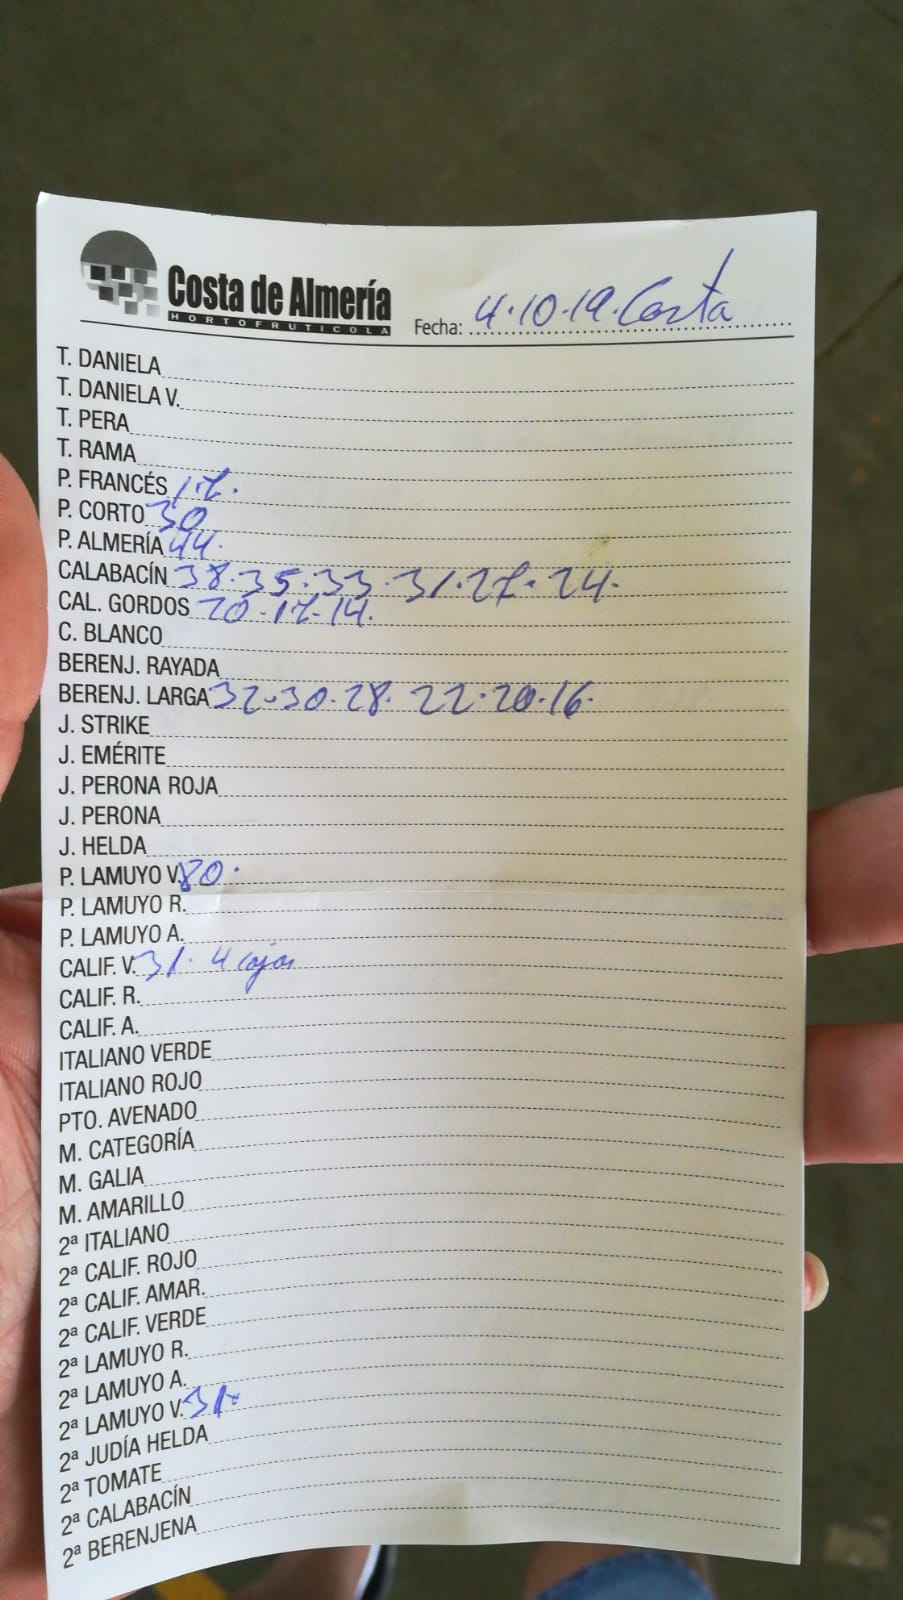 Costa de Almería
HORTOFRUTICOLA
Fecha: 4.10.19. Costa
T. DANIELA
T. DANIELA V.
T. PERA
T. RAMA
P. FRANCÉS 17.
P. CORTO 30
P. ALMERÍA 44.
CALABACÍN 38.35.33.31.27.24.
CAL. GORDOS 20.17.14.
C. BLANCO
BERENJ. RAYADA
BERENJ. LARGA 32.30.28. 22.20.16.
J. STRIKE
J. EMÉRITE
J. PERONA ROJA
J. PERONA
J. HELDA
P. LAMUYO V. 80.
P. LAMUYO R.
P. LAMUYO A.
CALIF. V. 31. 4 cajas
CALIF. R.
CALIF. A.
ITALIANO VERDE
ITALIANO ROJO
PTO. AVENADO
M. CATEGORÍA
M. GALIA
M. AMARILLO
2ª ITALIANO
2ª CALIF. ROJO
2ª CALIF. AMAR.
2ª CALIF. VERDE
2ª LAMUYO R.
2ª LAMUYO A.
2ª LAMUYO V. 31.
2ª JUDÍA HELDA
2ª TOMATE
2ª CALABACÍN
2ª BERENJENA